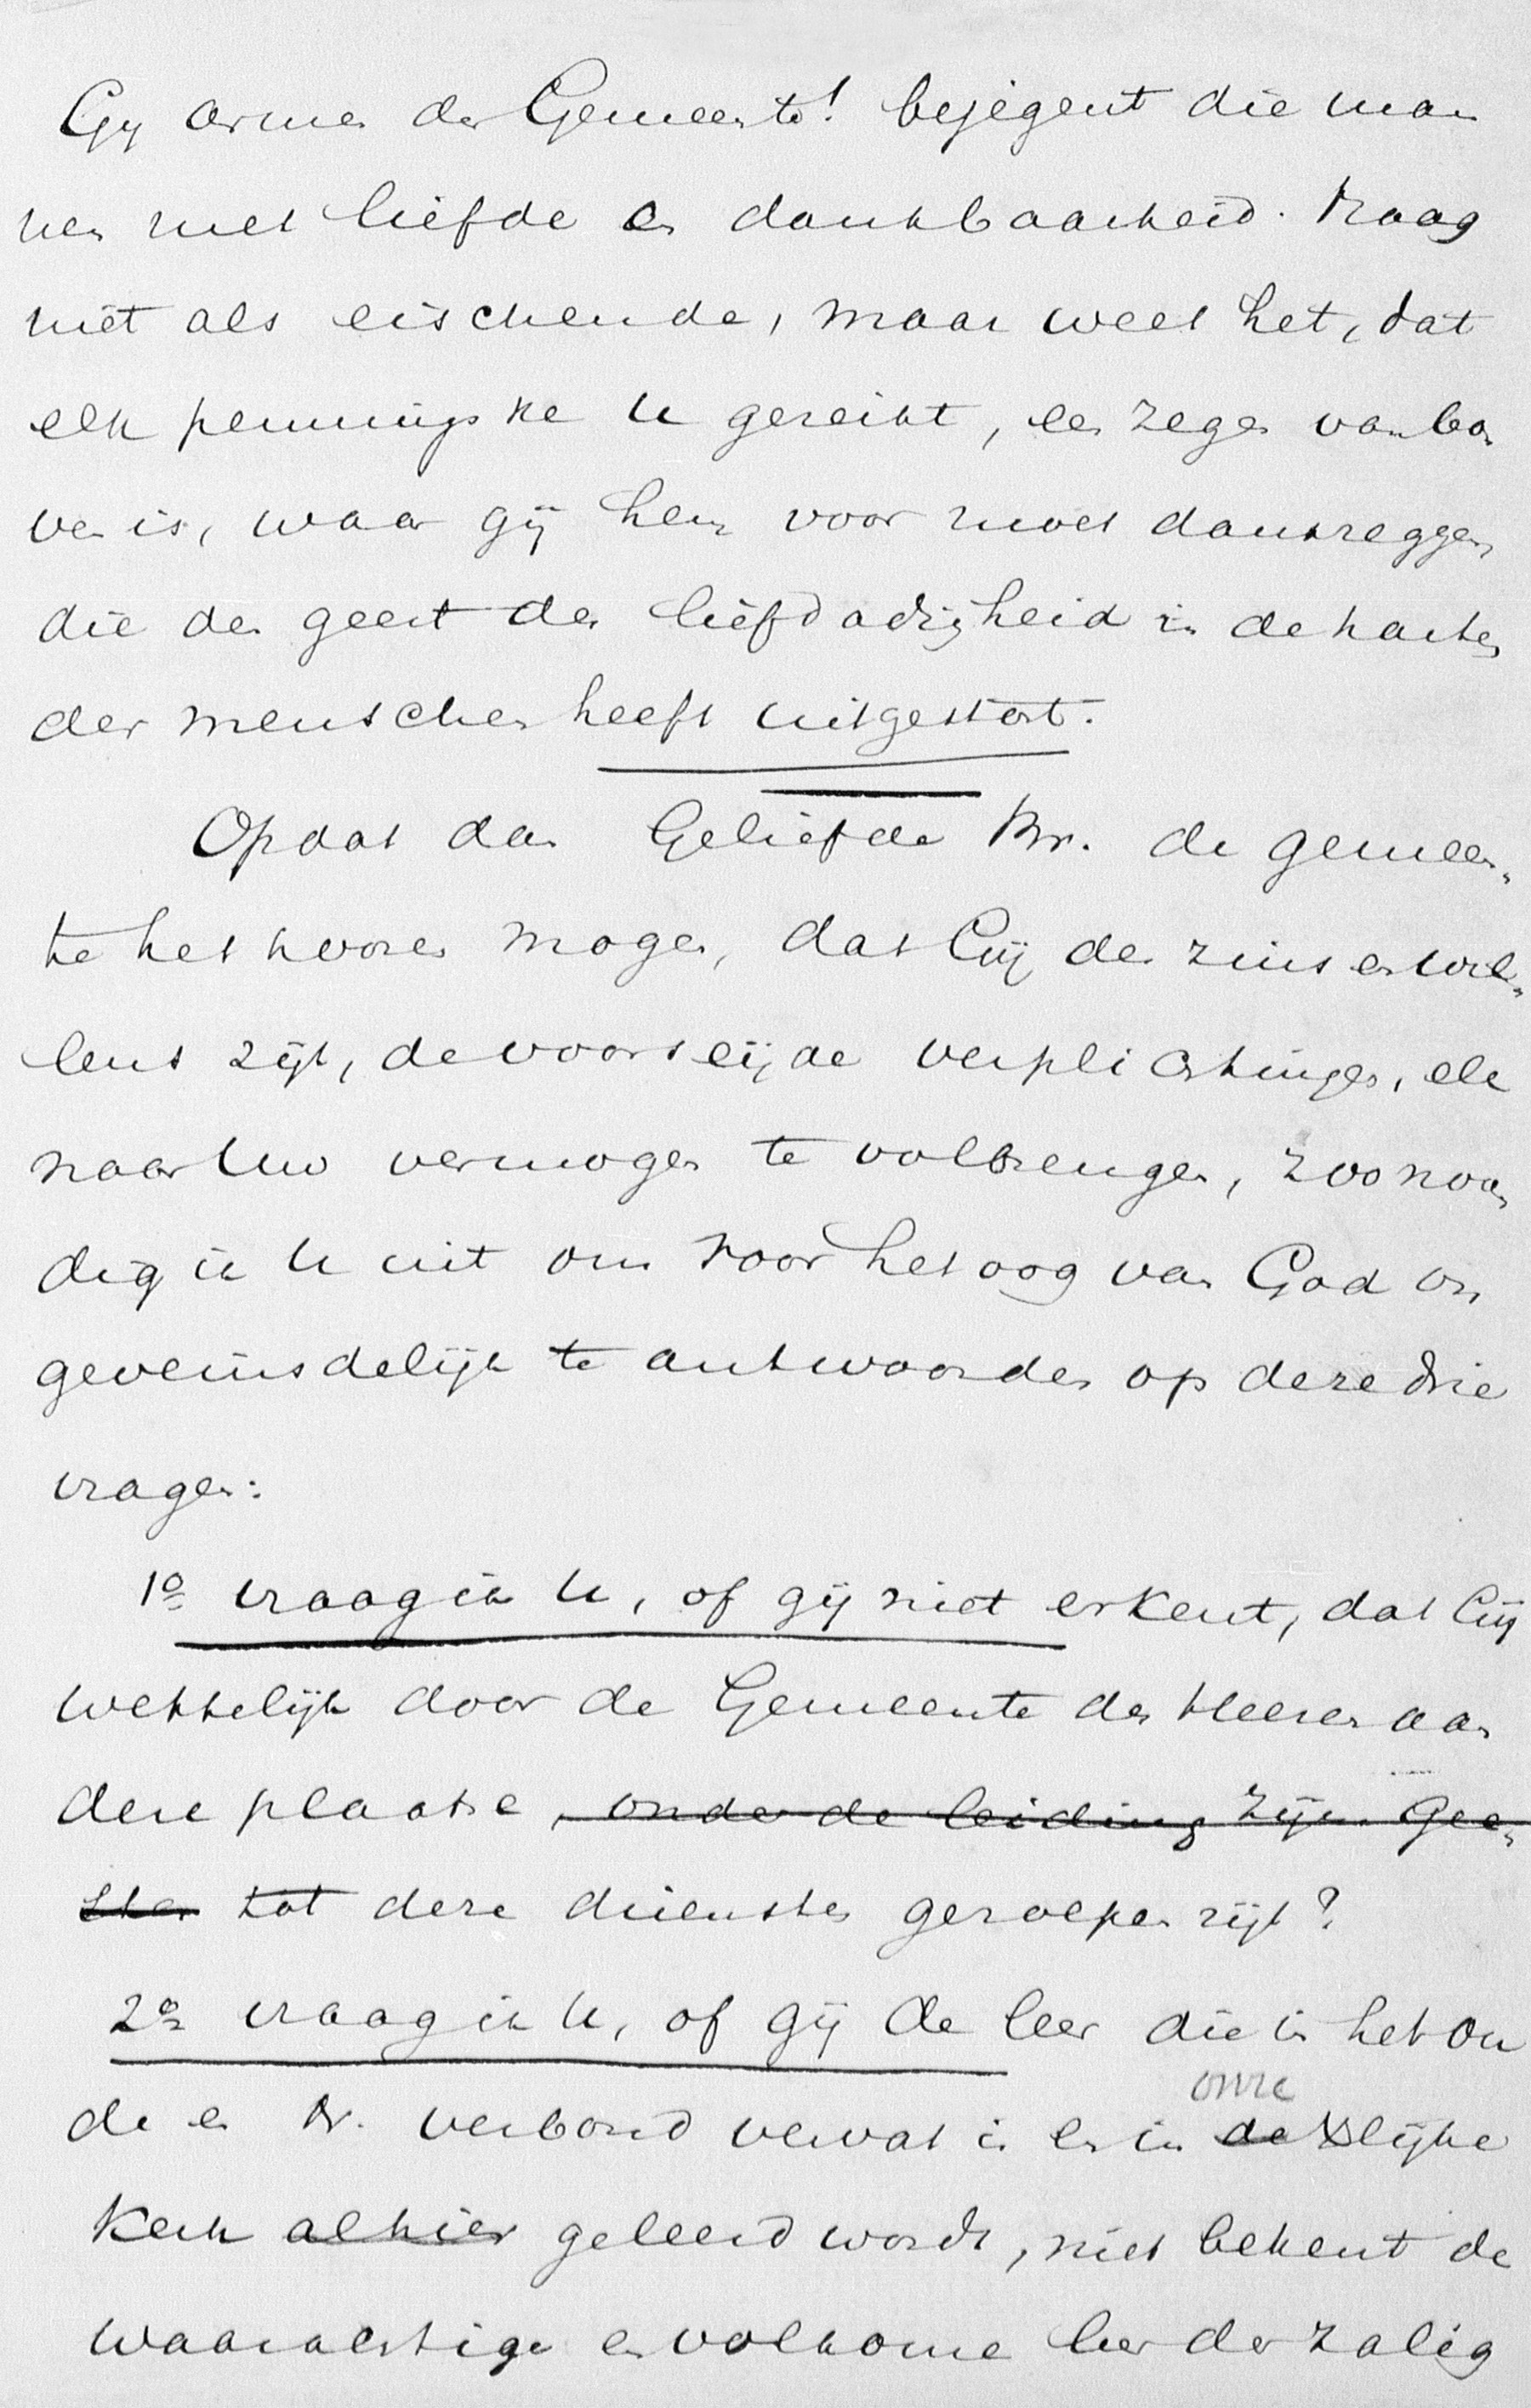 Gij armen der Gemeente! bejegent die man
nen met liefde en dankbaarheid. Vraag
niet als eischende, maar weet het, dat
elk penningske U gereikt, een zegen van bo
ven is, waar gij hem voor moet dankzeggen
die den geest der liefdadigheid in de harten
der menschen heeft uitgestort.
Opdat dan Geliefde Br. de gemeen„
te het hooren moge, dat Gij des zins en wil„
lens zijt, de voorseijde verplichtingen, elk
naar Uw vermogen te volbrengen, zoo noo
dig ik U uit om voor het oog van God on
geveinsdelijk te antwoorden op deze drie
vragen:
1º vraag ik U, of gij niet erkent, dat Gij
wettelijk door de Gemeente des Heeren aan
deze plaatse, onder de leiding zijn Gee„
stes tot deze diensten geroepen zijt?
2º vraag ik U, of gij de leer die in het Ou
onze
de en N. verbond vervat is en in de Xlijke
Kerk alhier geleerd wordt, niet bekent de
waarachtige en volkome leer der zalig